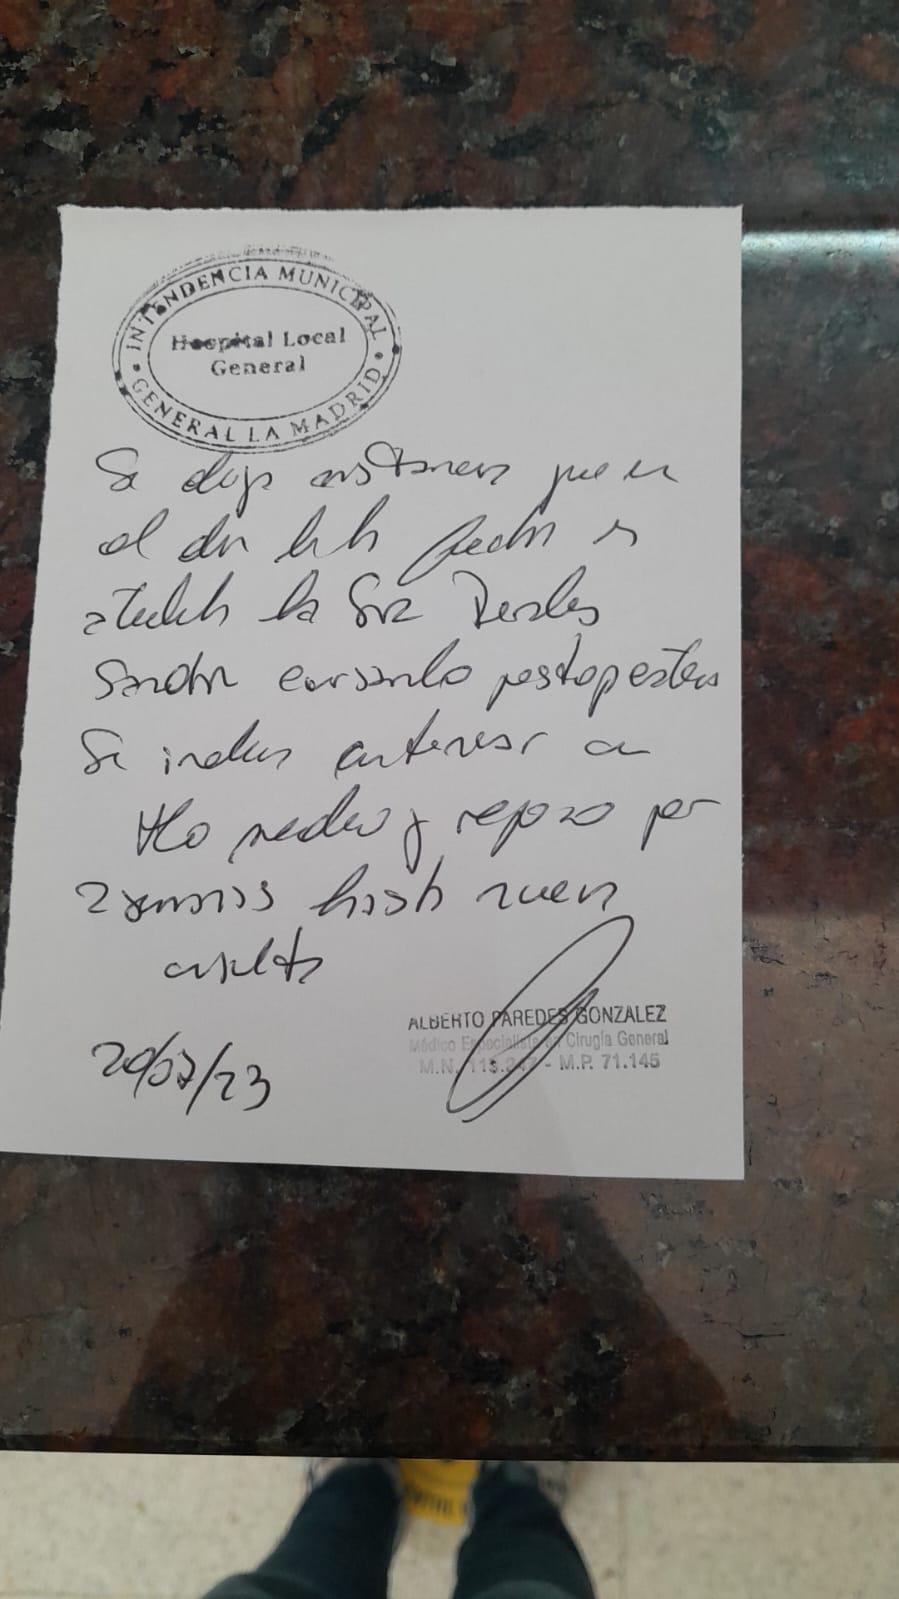 INTENDENCIA MUNICIPAL
Hospital Local
General
GENERAL LA MADRID
Se deja constancia que en
el día de la fecha se
atiende la Sra
Sandra cursando postoperatorio
Se indica continuar con
tto medico y reposo por
2 semanas hasta nueva
consulta
ALBERTO PAREDES GONZALEZ
Médico Especialista en Cirugía General
M.N. - M.P. 71.145
20/07/23